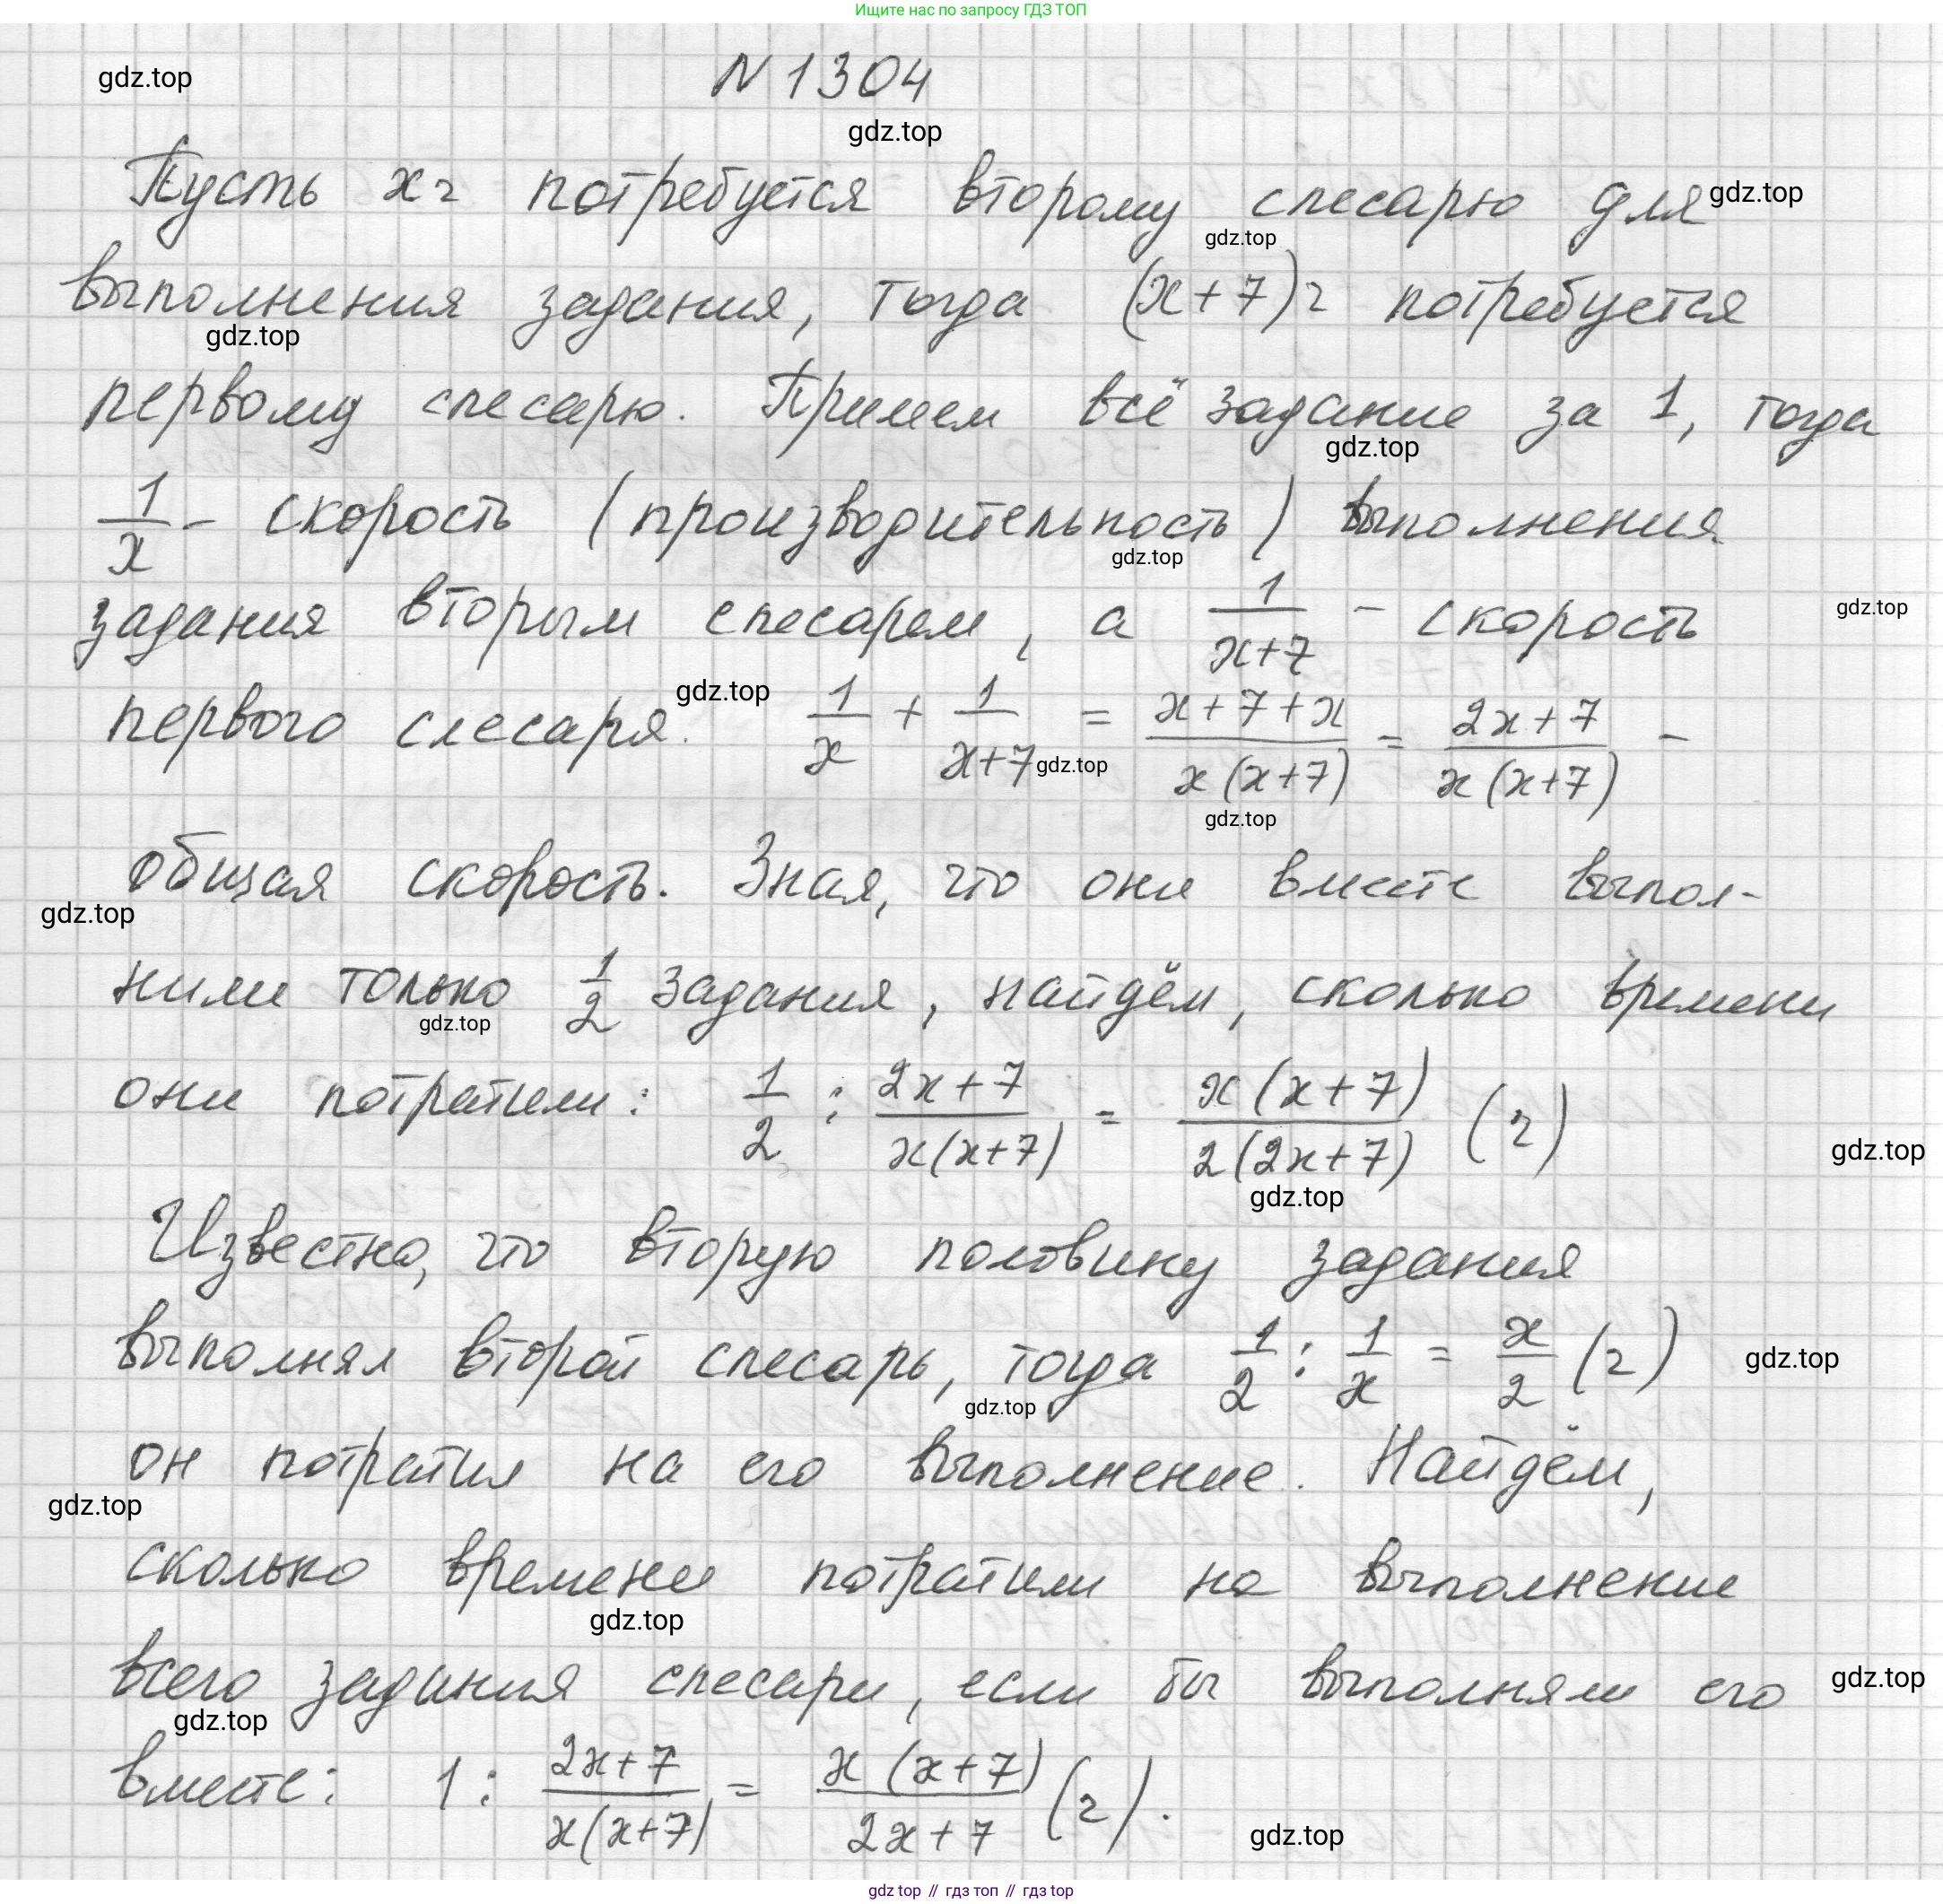 Ищите нас по запросу ГДЗ ТОП
gdz.top
N 1304
gdz.top
Пусть x ч потребуется второму слесарю для gdz.top
gdz.top
выполнения задания, тогда (x+7) ч потребуется
gdz.top
первому слесарю. Примем всё задание за 1, тогда
gdz.top
1/x - скорость (производительность) выполнения
gdz.top
задания вторым слесарем, а 1/(x+7) - скорость gdz.top
первого слесаря. gdz.top 1/x + 1/(x+7) = (x+7+x)/(x(x+7)) = (2x+7)/(x(x+7)) -
gdz.top
gdz.top
общая скорость. Зная, что они вместе выпол-
gdz.top
нили только 1/2 задания, найдём, сколько времени
gdz.top
они потратили: 1/2 : (2x+7)/(x(x+7)) = (x(x+7))/(2(2x+7)) (ч)
gdz.top
gdz.top
Известно, что вторую половину задания
выполнял второй слесарь, тогда 1/2 : 1/x = x/2 (ч) gdz.top
gdz.top
он потратил на его выполнение. Найдём,
gdz.top
сколько времени потратили на выполнение
gdz.top
всего задания слесари, если бы выполняли его gdz.top
gdz.top
вместе: 1 : (2x+7)/(x(x+7)) = (x(x+7))/(2x+7) (ч).
gdz.top
gdz top // гдз топ // гдз top